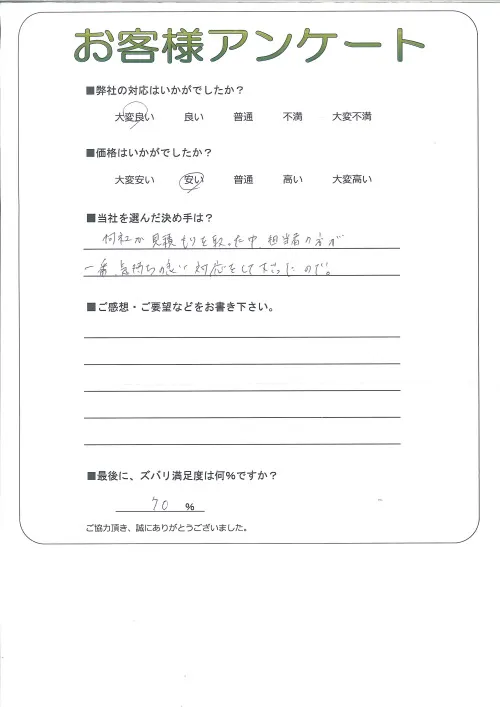 お客様アンケート
■弊社の対応はいかがでしたか？
大変良い 良い 普通 不満 大変不満
■価格はいかがでしたか？
大変安い 安い 普通 高い 大変高い
■当社を選んだ決め手は？
何社か見積もりを取った中、担当者の方が
一番、気持ちの良い対応をして下さったので。
■ご感想・ご要望などをお書き下さい。
■最後に、ズバリ満足度は何%ですか？
70 %
ご協力頂き、誠にありがとうございました。